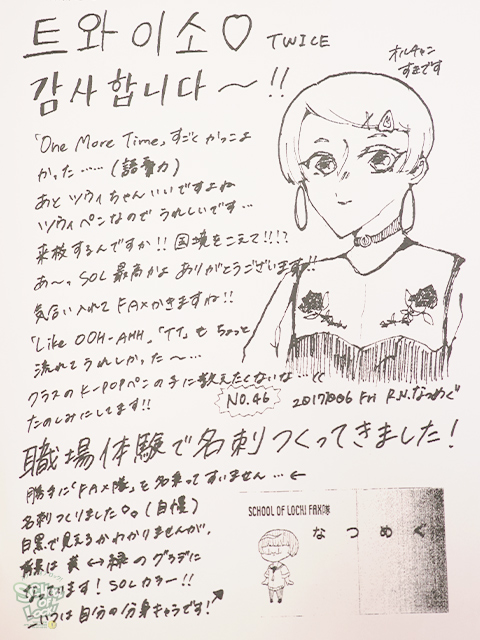 트와이소♡ TWICE
감사합니다〜!!
オルチャン
すきです
「One More Time」すごくかっこよ
かった……(語彙力)
あとツウィちゃんいいですよね
ツウィペンなのでうれしいです…
来校するんですか!! 国境をこえて!!!?
あ〜っSOL最高かよ ありがとうございます!!
気合い入れてFAXかきますね!!
「Like OOH-AHH」「TT」もちょっと
流れてうれしかった〜…
クラスのK-POPペンの子に教えたくないな…くく
たのしみにしてます!!
NO.46
20171006 Fri R.N.なつめぐ
職場体験で名刺つくってきました!
勝手に「FAX隊」を名乗ってすいません…←
名刺つくりました。。(自慢)
白黒で見えるかわかりませんが、
背景は黄↔緑のグラデに
なっています! SOLカラー!!
こいつは自分の分身キャラです!
SCHOOL OF LOCK! FAX隊
なつめぐ